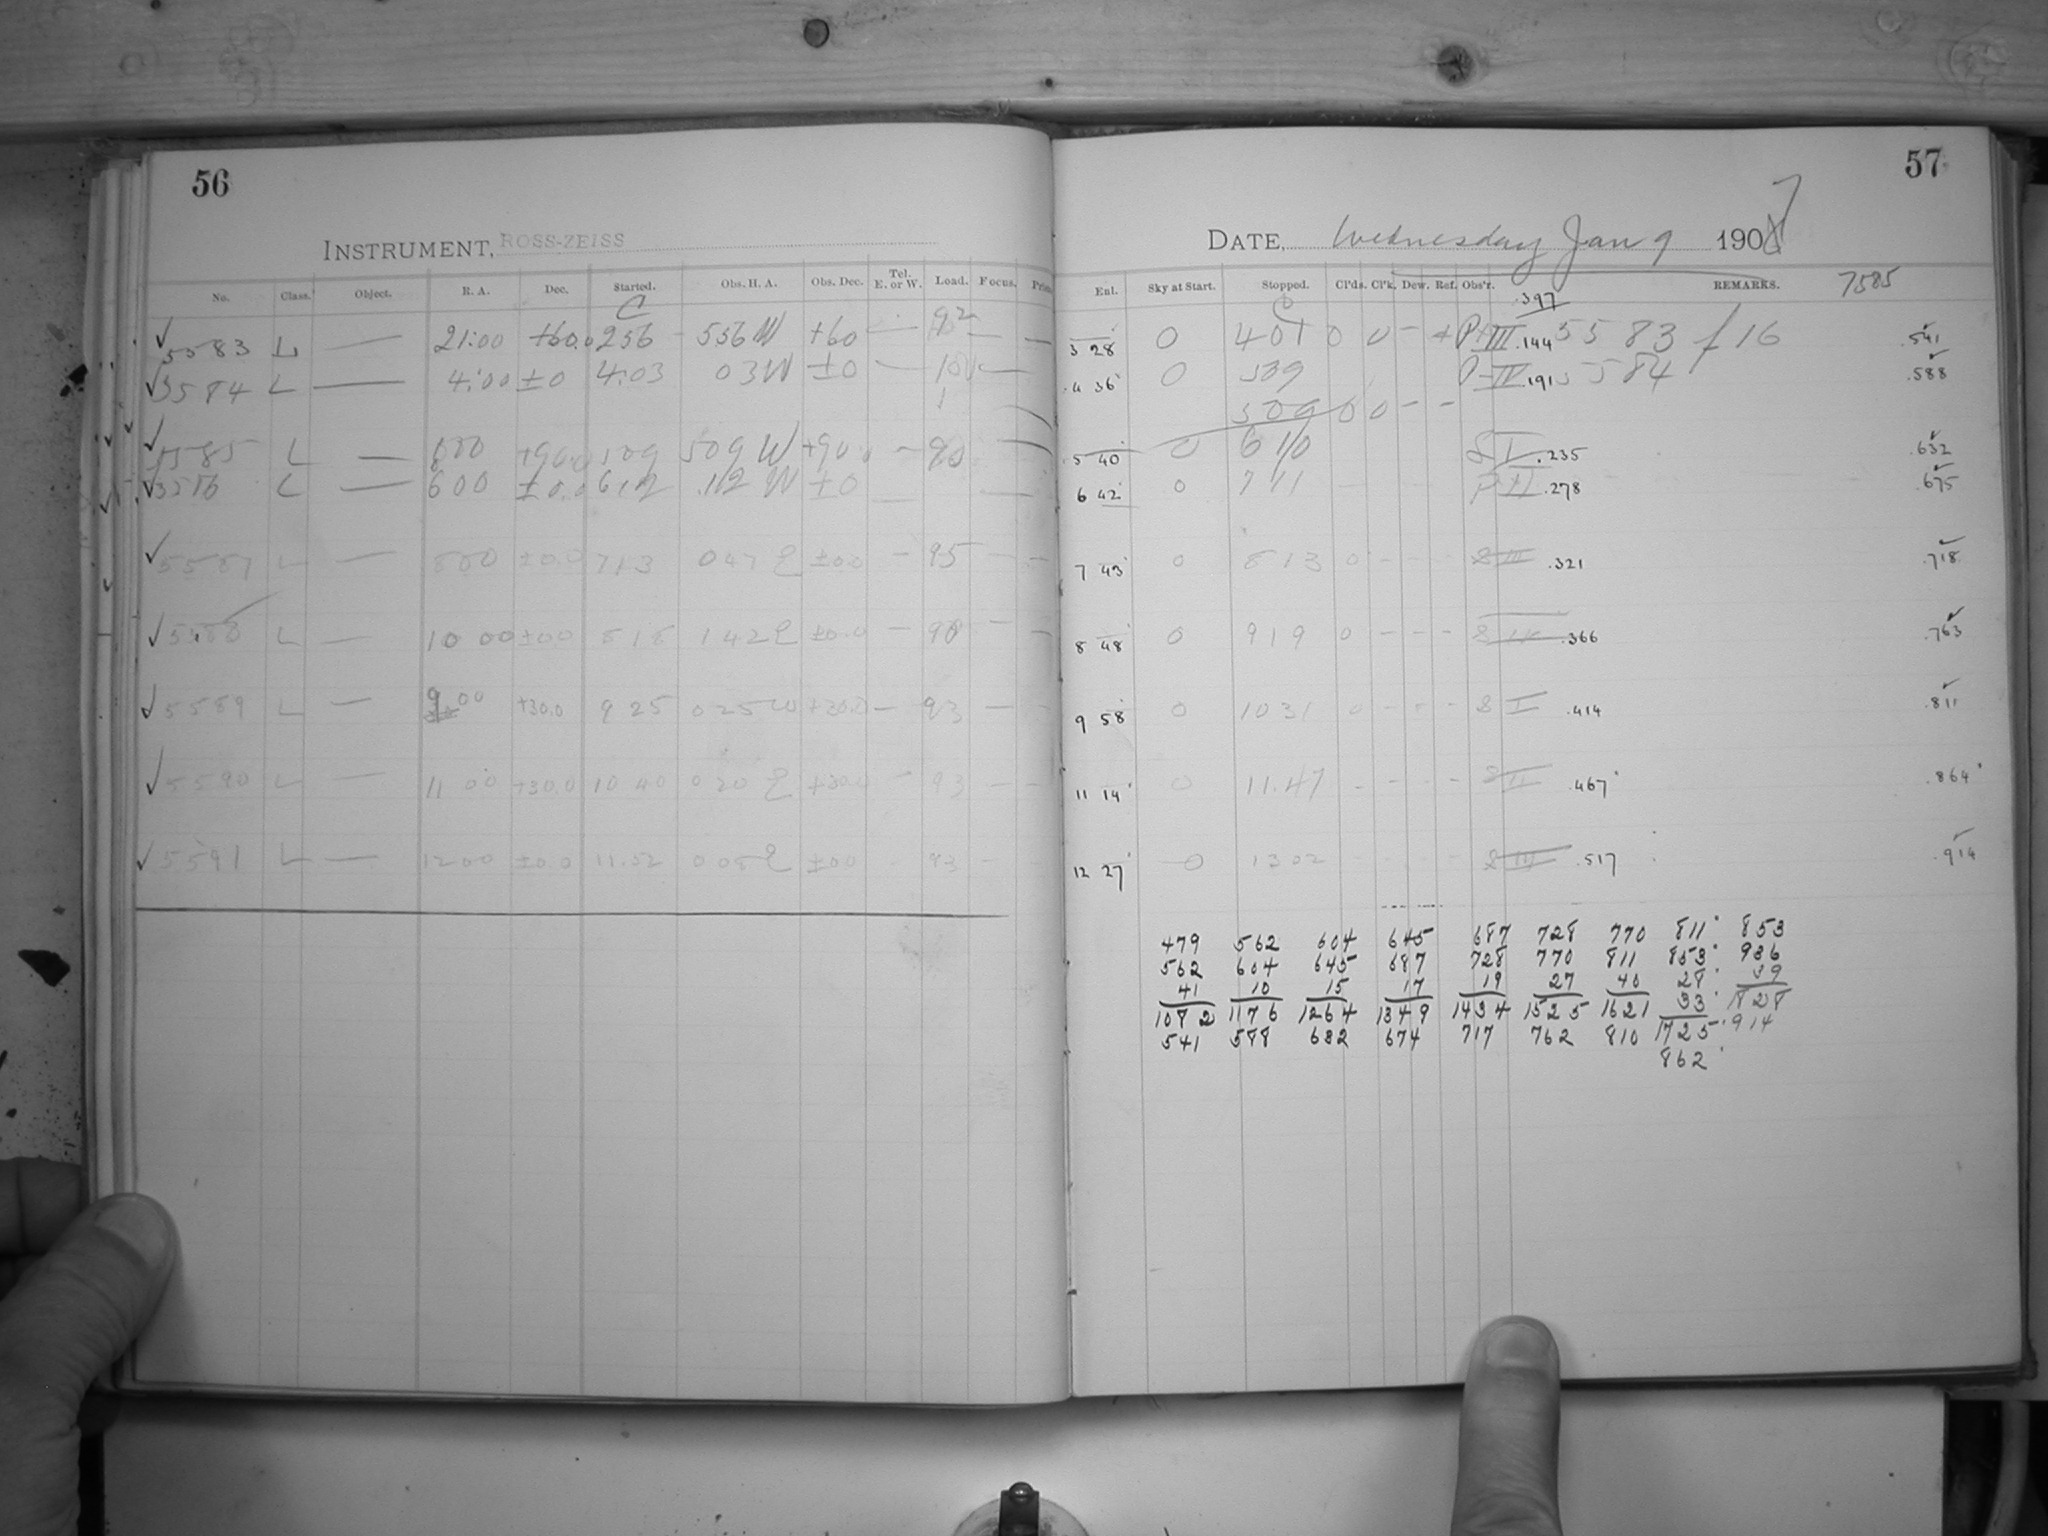 56
INSTRUMENT, ROSS-ZEISS
No. Class. Object. R. A. Dec. Started. Obs. H. A. Obs. Dec. Tel. E. or W. Load. Focus. Prism
C 92
5583 L — 21:00 +60.0 256 556 W +60 — —
3584 L — 4:00 ±0 4:03 03W ±0 — —
L — 600 509 W — 90
L — 600 ±0.0 612 ±0
L — ±0.0 713 047 E ±00 — 95 — —
L — 10 00 ±00 142 E ±0.0 — 90 — —
5589 L — 9 00 +30.0 9 25 0 25 W +30.0 — 93 — —
5590 L — 11 00 +30.0 10 40 0 20 E +30.0 — 93 — —
5591 L — 12 00 ±0.0 11.52 0 05 E ±00 - 93 -
57
DATE, Wednesday Jan 9 1907
Enl. Sky at Start. Stopped. Cl'ds. Cl'k. Dew. Ref. Obs'r. REMARKS. 7585
.397
3 28 0 401 0 0 – P III .144 5583 f 16 .541
4 36 0 509 P IV .191 5584 .588
509 0 0 – –
5 40 0 610 S I .235 .632
6 42 0 711 – P II .278 .675
7 43 0 813 0 - - - S III .321 .718
8 48 0 919 0 - - - S IV .366 .763
9 58 0 1031 0 - - - S I .414 .811
11 14 0 11.47 - - - - S II .467 .864
12 27 0 1302 - - - - S III .517 .914
479 562 604 645 687 728 770 811 853
562 604 645 687 728 770 811 853 936
41 10 15 17 19 27 40 28 39
1082 1176 1264 1349 1434 1525 1621 33 1828
541 588 632 674 717 762 810 1725 914
862